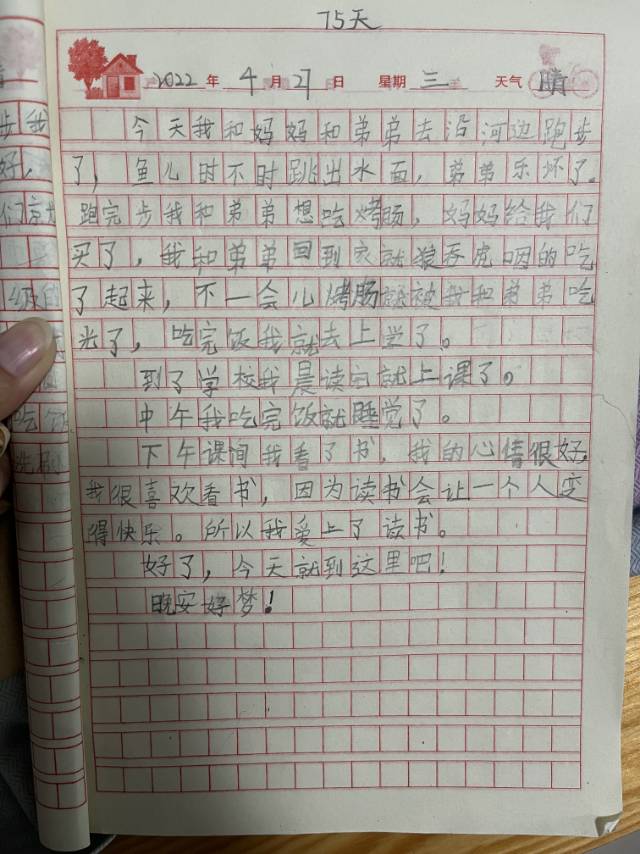 75天
2022年4月27日 星期三 天气晴
今天我和妈妈和弟弟去沿河边跑步
了，鱼儿时不时跳出水面，弟弟乐坏了。
跑完步我和弟弟想吃烤肠，妈妈给我们
买了，我和弟弟回到家就狼吞虎咽的吃
了起来，不一会儿烤肠就被我和弟弟吃
光了，吃完饭我就去上学了。
到了学校我晨读完就上课了。
中午我吃完饭就睡觉了。
下午课间我看了书，我的心情很好，
我很喜欢看书，因为读书会让一个人变
得快乐。所以我爱上了读书。
好了，今天就到这里吧！
晚安好梦！
步我
好，
们
级的
吃饭